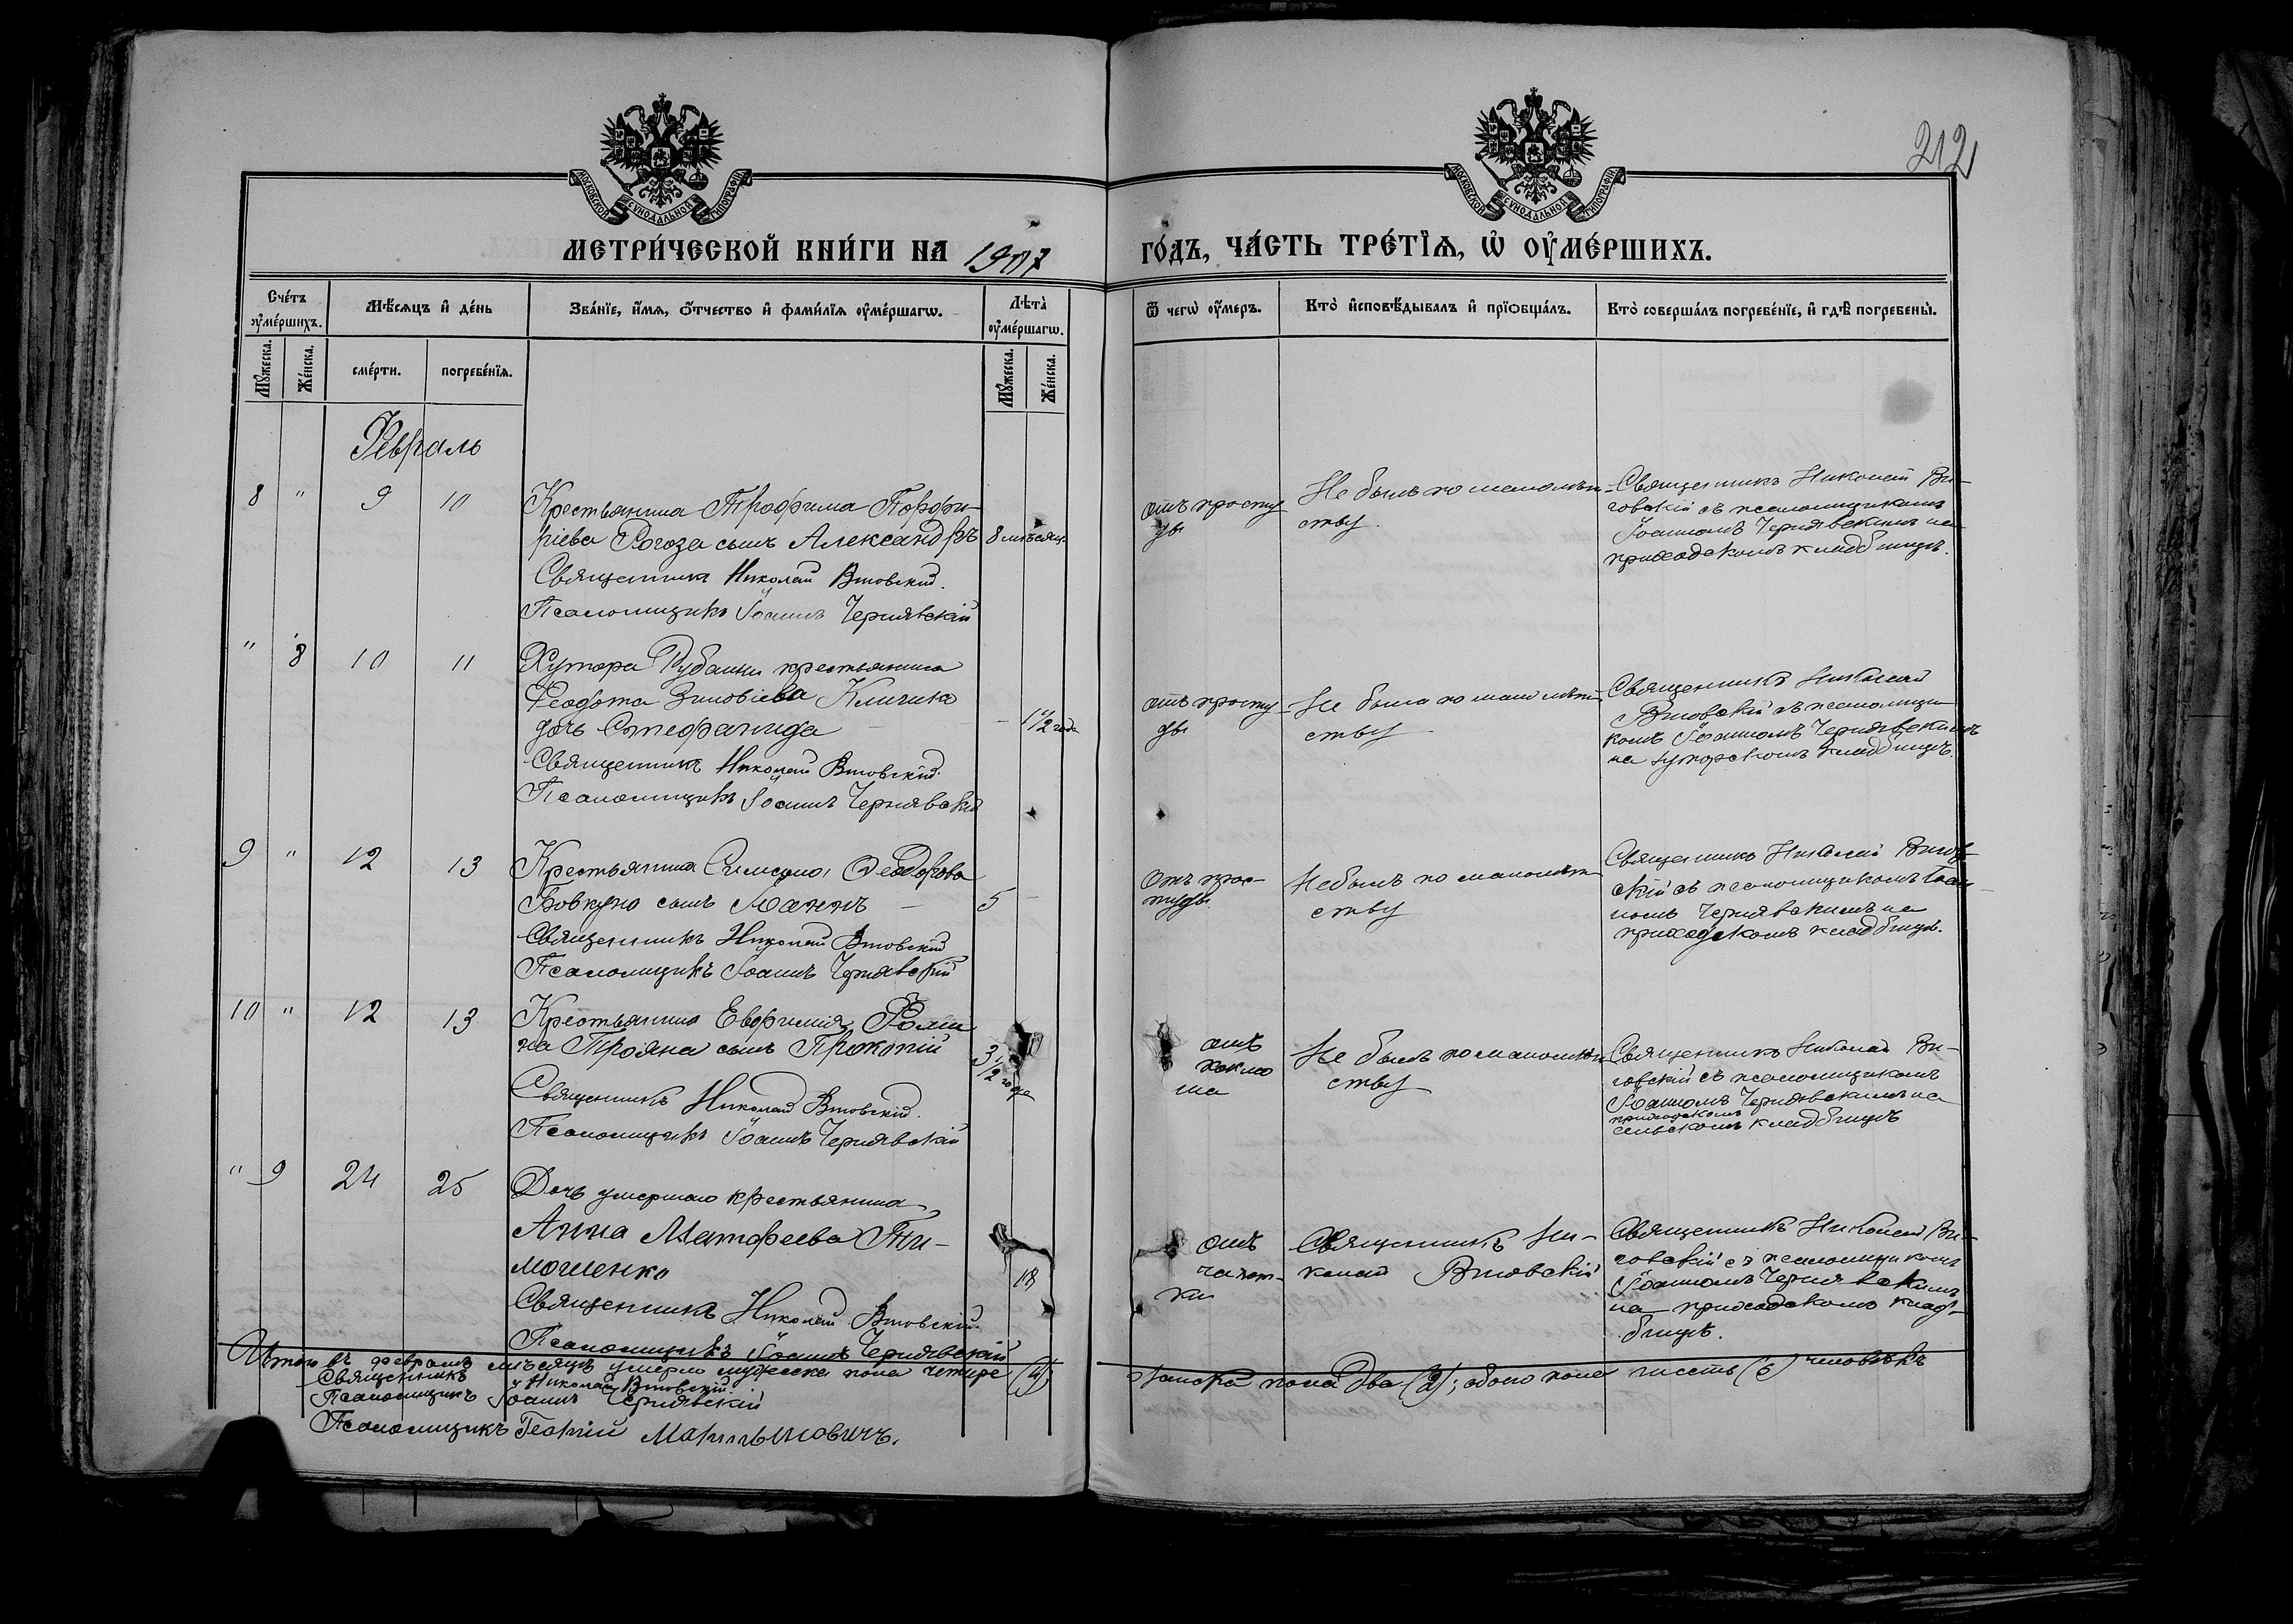 212
МОСКОВСКОЙ СѴНОДАЛЬНОЙ ТИПОГРАФІИ
МОСКОВСКОЙ СѴНОДАЛЬНОЙ ТИПОГРАФІИ
МЕТРИ́ЧЕСКОЙ КНИ́ГИ НА 1907 ГО́ДЪ, ЧА́СТЬ ТРЕ́ТЇѦ, Ѡ҆ ОУ҆МЕ́РШИХЪ.
Сче́тъ оу҆ме́ршихъ.
Мѣ́сяцъ и҆ де́нь
Зва́нїе, и҆́мя, ѻ҆́тчество и҆ фами́лїя оу҆ме́ршагѡ.
Лѣта̀ оу҆ме́ршагѡ.
Ѿ чегѡ̀ оу҆́меръ.
Кто̀ и҆сповѣ́дывалъ и҆ прїѻбща́лъ.
Кто̀ соверша́лъ погребе́нїе, и҆ гдѣ̀ погребены̀.
Мꙋ́жеска.
Же́нска.
сме́рти.
погребе́нїя.
Мꙋ́жеска.
Же́нска.
Февраль
8 " 9 10
Крестьянина Трофима Порфи-
ріева Рогоза сынъ Александръ
8 мѣсяц.
Священникъ Николай Витовскій.
Псаломщикъ Іоаннъ Чернявскій
отъ просту
ды
Не былъ по малолѣт-
ству.
Священникъ Николай Ви-
товскій съ псаломщикомъ
Іоанномъ Чернявскимъ на
приходскомъ кладбищѣ.
" 8 10 11
Хутора Рубанки крестьянина
Феодота Зиновіева Кличка
дочь Стефанида
1 1/2 года
Священникъ Николай Витовскій.
Псаломщикъ Іоаннъ Чернявскій
отъ просту
ды
Не была по малолѣт-
ству
Священникъ Николай
Витовскій съ псаломщи
комъ Іоанномъ Чернявскимъ
на хуторскомъ кладбищѣ.
9 " 12 13
Крестьянина Симеона Феодорова
Бовкуна сынъ Іоаннъ
5
Священникъ Николай Витовскій
Псаломщикъ Іоаннъ Чернявскій
Отъ прос-
туды.
Не былъ по малолѣт-
ству
Священникъ Николай Витов-
скій съ псаломщикомъ Іоан-
номъ Чернявскимъ на
приходскомъ кладбищѣ.
10 " 12 13
Крестьянина Евфимія Фоми
на Трояна сынъ Прокопій
3 1/2 года
Священникъ Николай Витовскій.
Псаломщикъ Іоаннъ Чернявскій
отъ
коклю
ша
Не былъ по малолѣт-
ству
Священникъ Николай Ви-
товскій съ псаломщикомъ
Іоанномъ Чернявскимъ на
приходскомъ
сельскомъ кладбищѣ
" 9 24 25
Дочь умершаго крестьянина,
Анна Матфеева Ти-
мошенко
18
Священникъ Николай Витовскій.
Псаломщикъ Іоаннъ Чернявскій
отъ
чахот-
ки
Священникъ Ни-
колай Витовскій
Священникъ Николай Ви-
товскій съ псаломщикомъ
Іоанномъ Чернявскимъ
на приходскомъ клад-
бищѣ.
Итого въ февралѣ мѣсяцѣ умерло мужеска пола четыре (4);
женска пола два (2); обоего пола шесть (6) человѣкъ
Священникъ Николай Витовскій.
Псаломщикъ Іоаннъ Чернявскій
Псаломщикъ Георгій